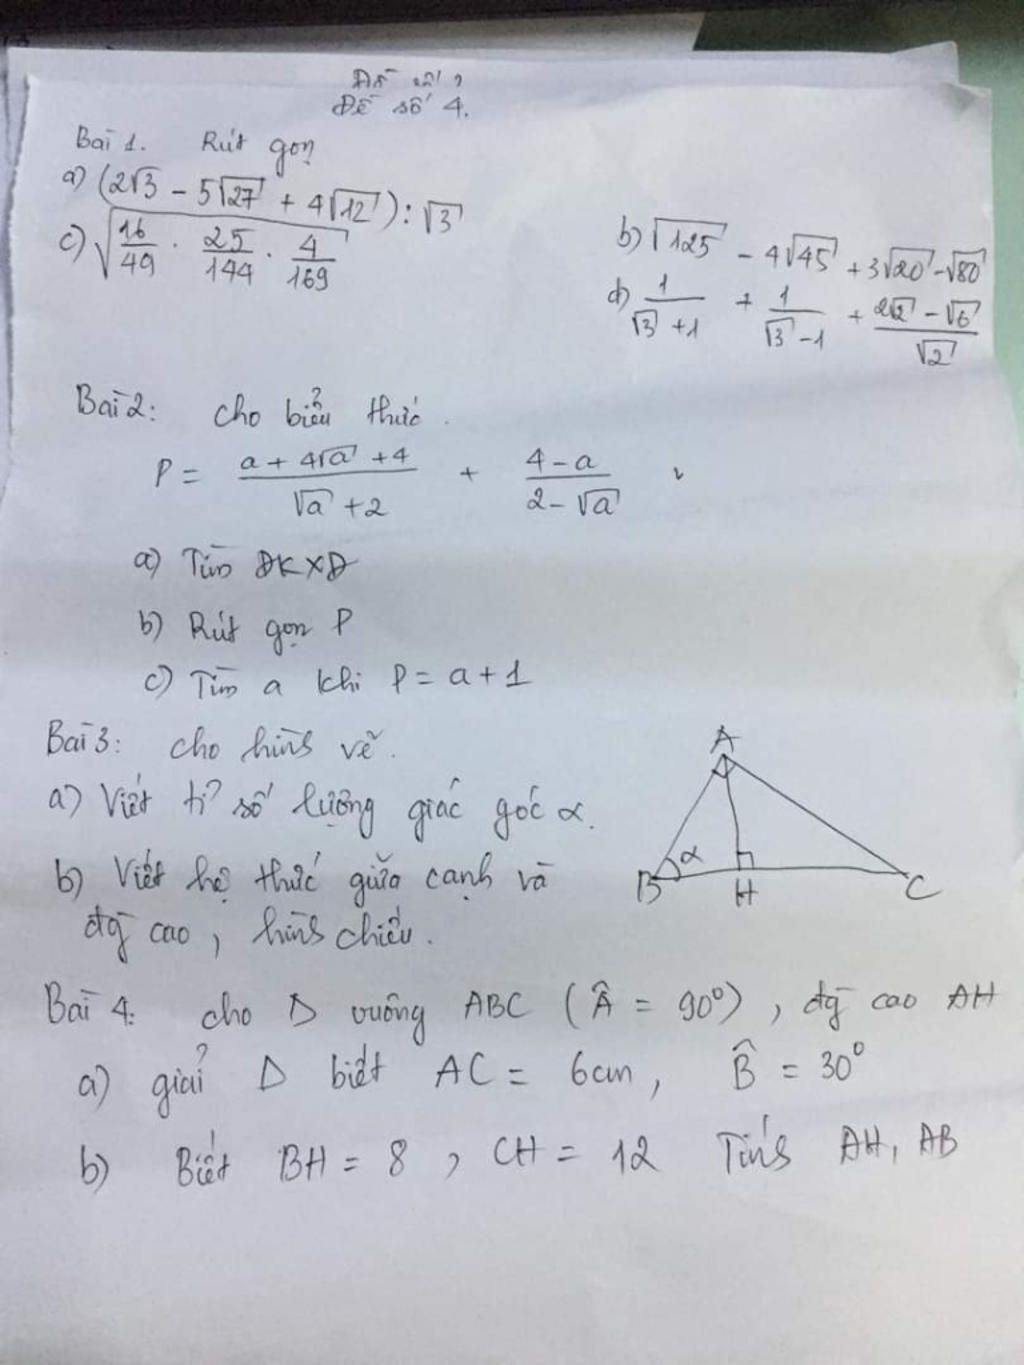 Đề số 4.
Bài 1. Rút gọn
a) (2√3 - 5√27 + 4√12) : √3
b) √125 - 4√45 + 3√20 - √80
c) √(16/49 . 25/144 . 4/169)
d) 1/(√3 + 1) + 1/(√3 - 1) + (2√2 - √6)/√2
Bài 2: cho biểu thức.
P = (a + 4√a + 4)/(√a + 2) + (4 - a)/(2 - √a)
a) Tìm ĐKXĐ
b) Rút gọn P
c) Tìm a khi P = a + 1
Bài 3: cho hình vẽ.
a) Viết tỉ số lượng giác góc α.
b) Viết hệ thức giữa cạnh và
đg cao, hình chiếu.
A
α
B H C
Bài 4: cho Δ vuông ABC (Â = 90°), đg cao AH
a) giải Δ biết AC = 6cm, B̂ = 30°
b) Biết BH = 8, CH = 12 Tính AH, AB